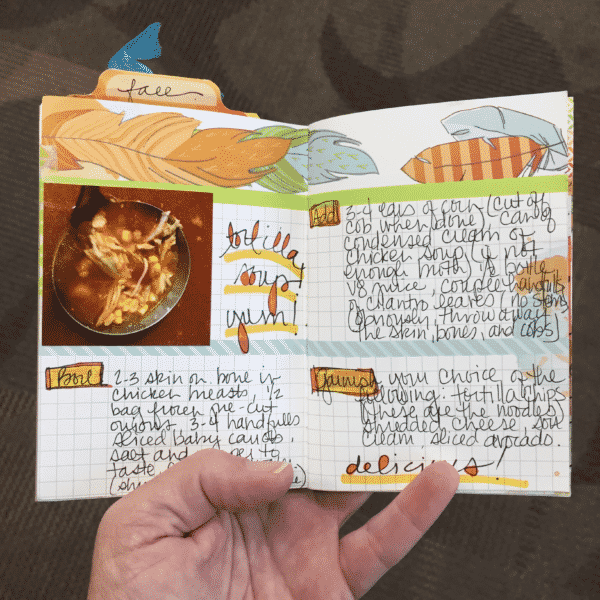 fall
tortilla
soup
yum!
Boil 2-3 skin on bone in
chicken breasts, 1/2
bag frozen pre-cut
onions, 3-4 handfulls
sliced baby carrots,
salt and
taste
Add 3-4 ears of corn (cut off
cob when done), can of
condensed cream of
chicken soup (if not
enough broth) 1/2 bottle
V8 juice, couple handfuls
of cilantro leaves (no stems)
(obviously, throw away
the skin, bones, and cobs)
Garnish your choice of the
following: tortilla chips
(these are the noodles)
shredded cheese, sour
cream, sliced avocado.
delicious!